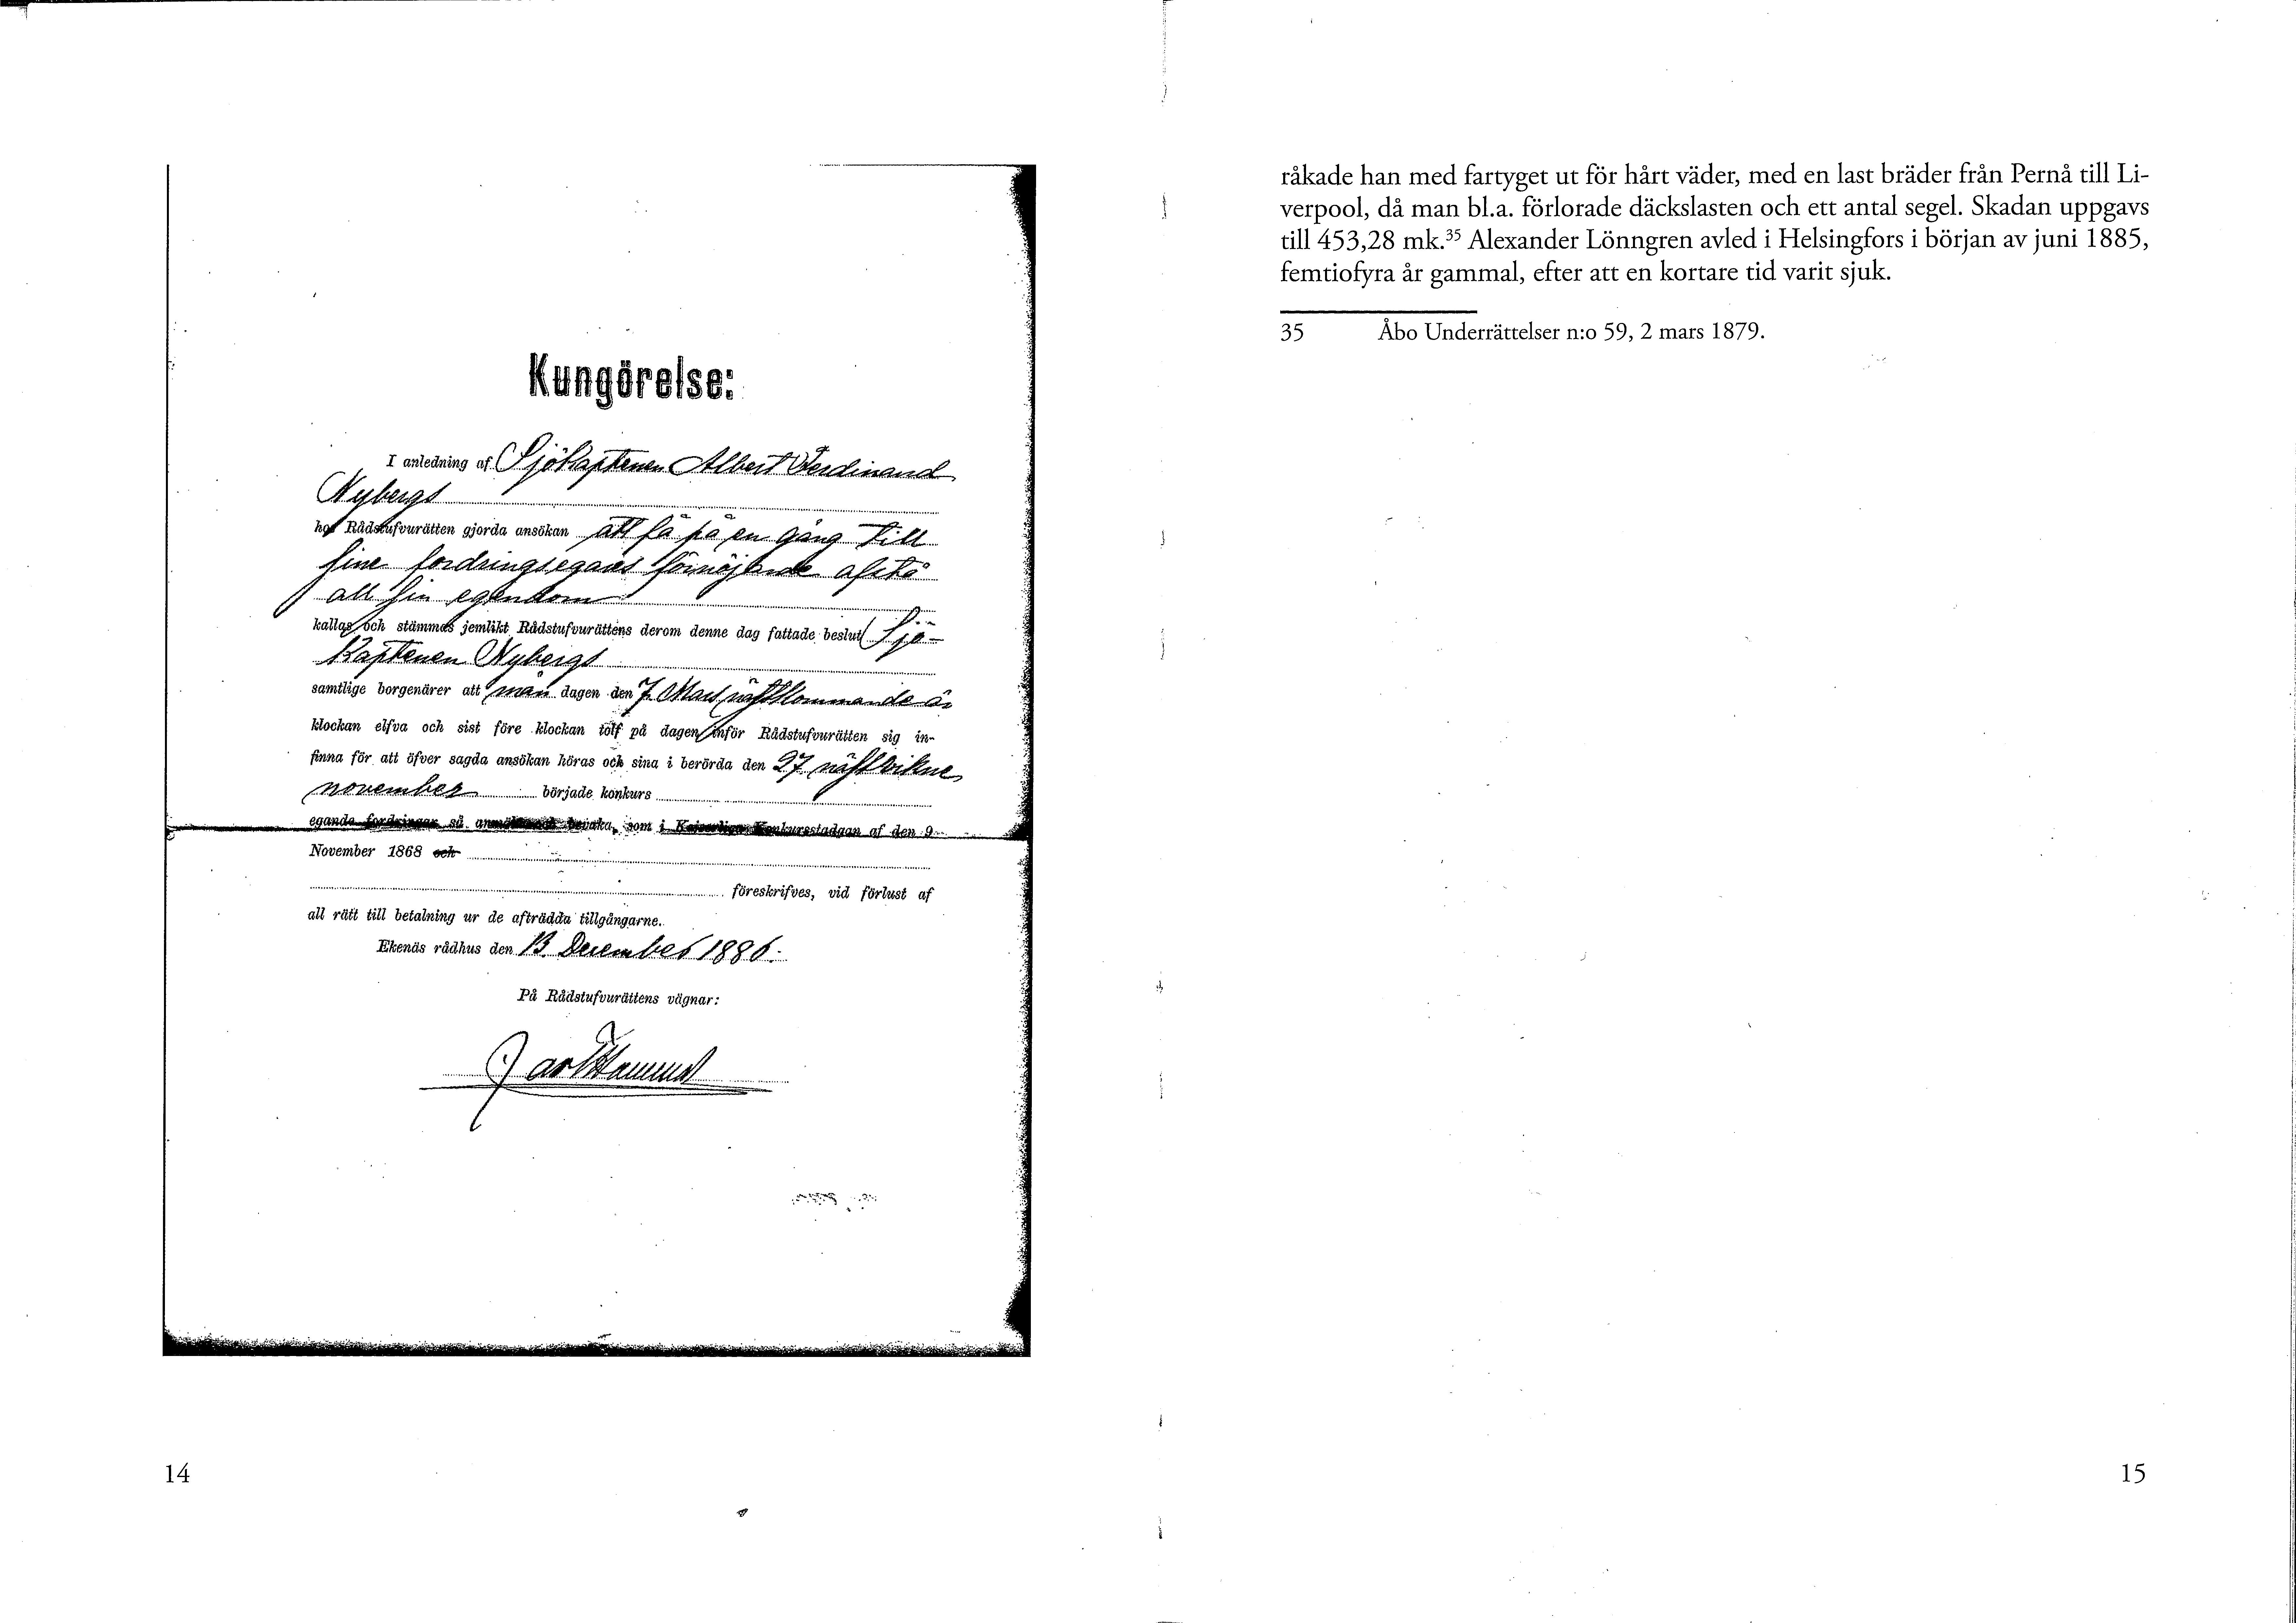 Kungörelse:
I anledning af Sjökaptenen Albert Ferdinand
Nybergs
hos Rådstufvurätten gjorda ansökan att få på en gång till
sine fordringsegares förnöjande afstå
all sin egendom
kallas och stämmas jemlikt Rådstufvurättens derom denne dag fattade beslut Sjö-
kaptenen Nybergs
samtlige borgenärer att mån dagen den 7 Mars nästkommande år
klockan elfva och sist före klockan tolf på dagen inför Rådstufvurätten sig in-
finna för att öfver sagda ansökan höras och sina i berörda den 27 nästvikne
november började konkurs
egande fordringar så bevaka, som i Kejserliga Konkursstadgan af den 9
November 1868 och
föreskrifves, vid förlust af
all rätt till betalning ur de afträdda tillgångarne.
Ekenäs rådhus den 13 December 1886.
På Rådstufvurättens vägnar:
14
råkade han med fartyget ut för hårt väder, med en last bräder från Pernå till Li-
verpool, då man bl.a. förlorade däckslasten och ett antal segel. Skadan uppgavs
till 453,28 mk.35 Alexander Lönngren avled i Helsingfors i början av juni 1885,
femtiofyra år gammal, efter att en kortare tid varit sjuk.
35 Åbo Underrättelser n:o 59, 2 mars 1879.
15